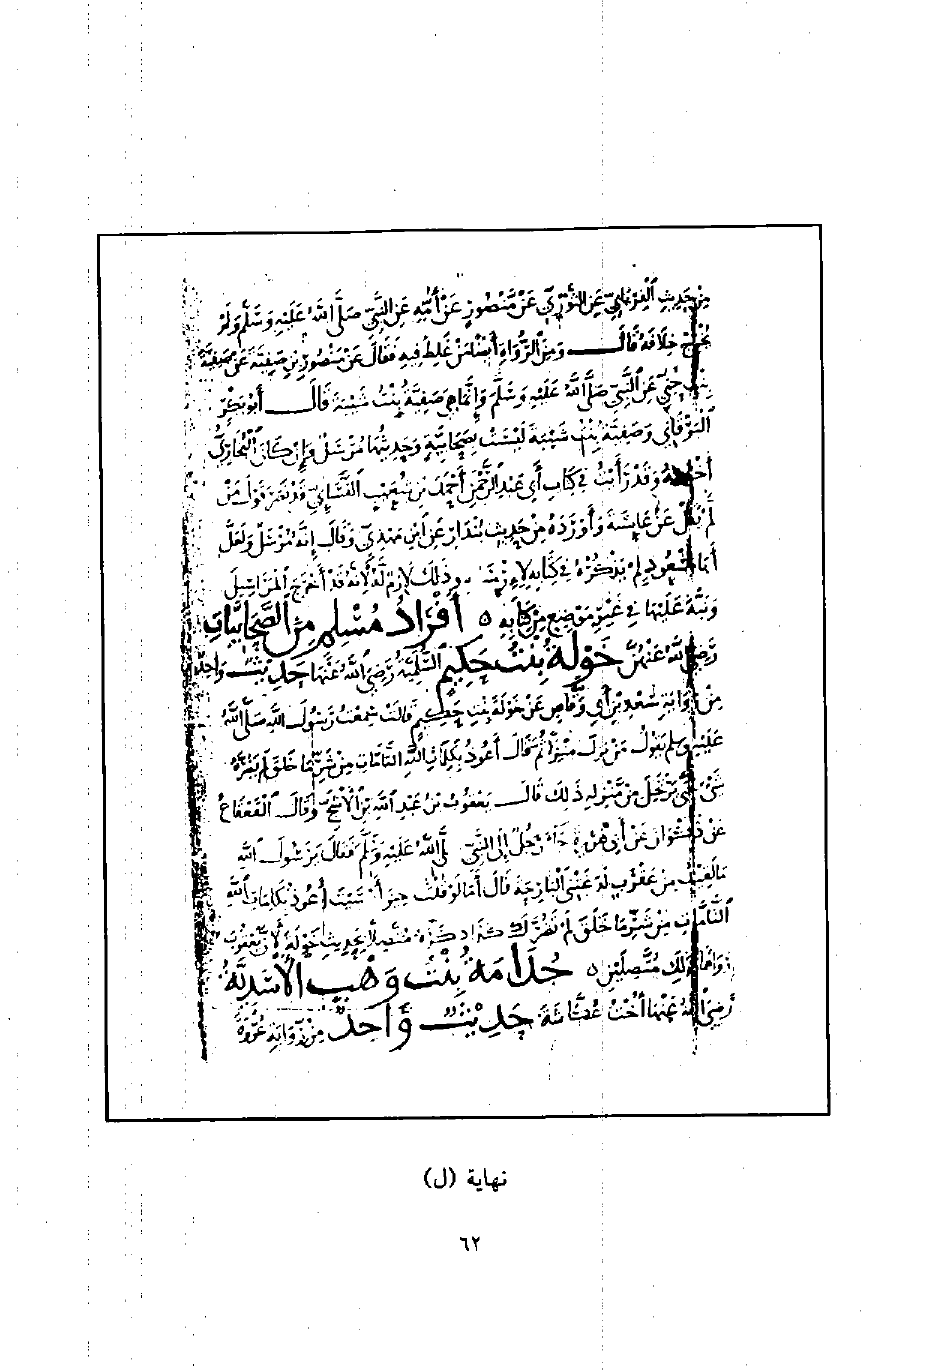 من حديث الفريابي عن الثوري عن منصور عن أمه عن النبي صلى الله عليه وسلم ولم
يخرج خلافه قال ومن الرواة أيضا من غلط فيه فقال عن منصور بن صفية عن صفية
بنت حيي عن النبي صلى الله عليه وسلم وإنما هي صفية بنت شيبة قال أبو بكر
البرقاني وصفية بنت شيبة ليست بصحابية وحديثها مرسل وإن كان البخاري
أخرجه وقد رأيت في كتاب أبي عبد الرحمن أحمد بن شعيب النسائي قول من
لم يقل عن عايشة وأورده من حديث بندار عن ابن مهدي وقال إنه مرسل ولعل
أبا مسعود لم يذكره في كتابه وذلك لازم له لأنه قد أخرج المراسيل
ونبه عليها في غير موضع من كتابه ٥ أفراد مسلم من الصحابيات
رضي الله عنهن خولة بنت حكيم السلمية رضي الله عنها حديث واحد
من رواية سعد بن أبي وقاص عن خولة بنت حكيم قالت سمعت رسول الله صلى الله
عليه وسلم يقول من نزل منزلا ثم قال أعوذ بكلمات الله التامات من شر ما خلق لم يضره
شي حتى يرتحل من منزله ذلك قال يعقوب بن عبد الله بن الأشج وقال القعقاع
عن ذكوان عن أبي هريرة جاء رجل إلى النبي صلى الله عليه وسلم فقال يا رسول الله
ما لقيت من عقرب لدغتني البارحة قال أما لو قلت حين أمسيت أعوذ بكلمات الله
التامات من شر ما خلق لم تضرك كذا ذكره متصلا بحديث خولة لأن يعقوب
رواهما كذلك متصلين ٥ جدامة بنت وهب الأسدية
رضي الله عنها أخت عكاشة حديث واحد من رواية عروة
نهاية (ل)
٦٢